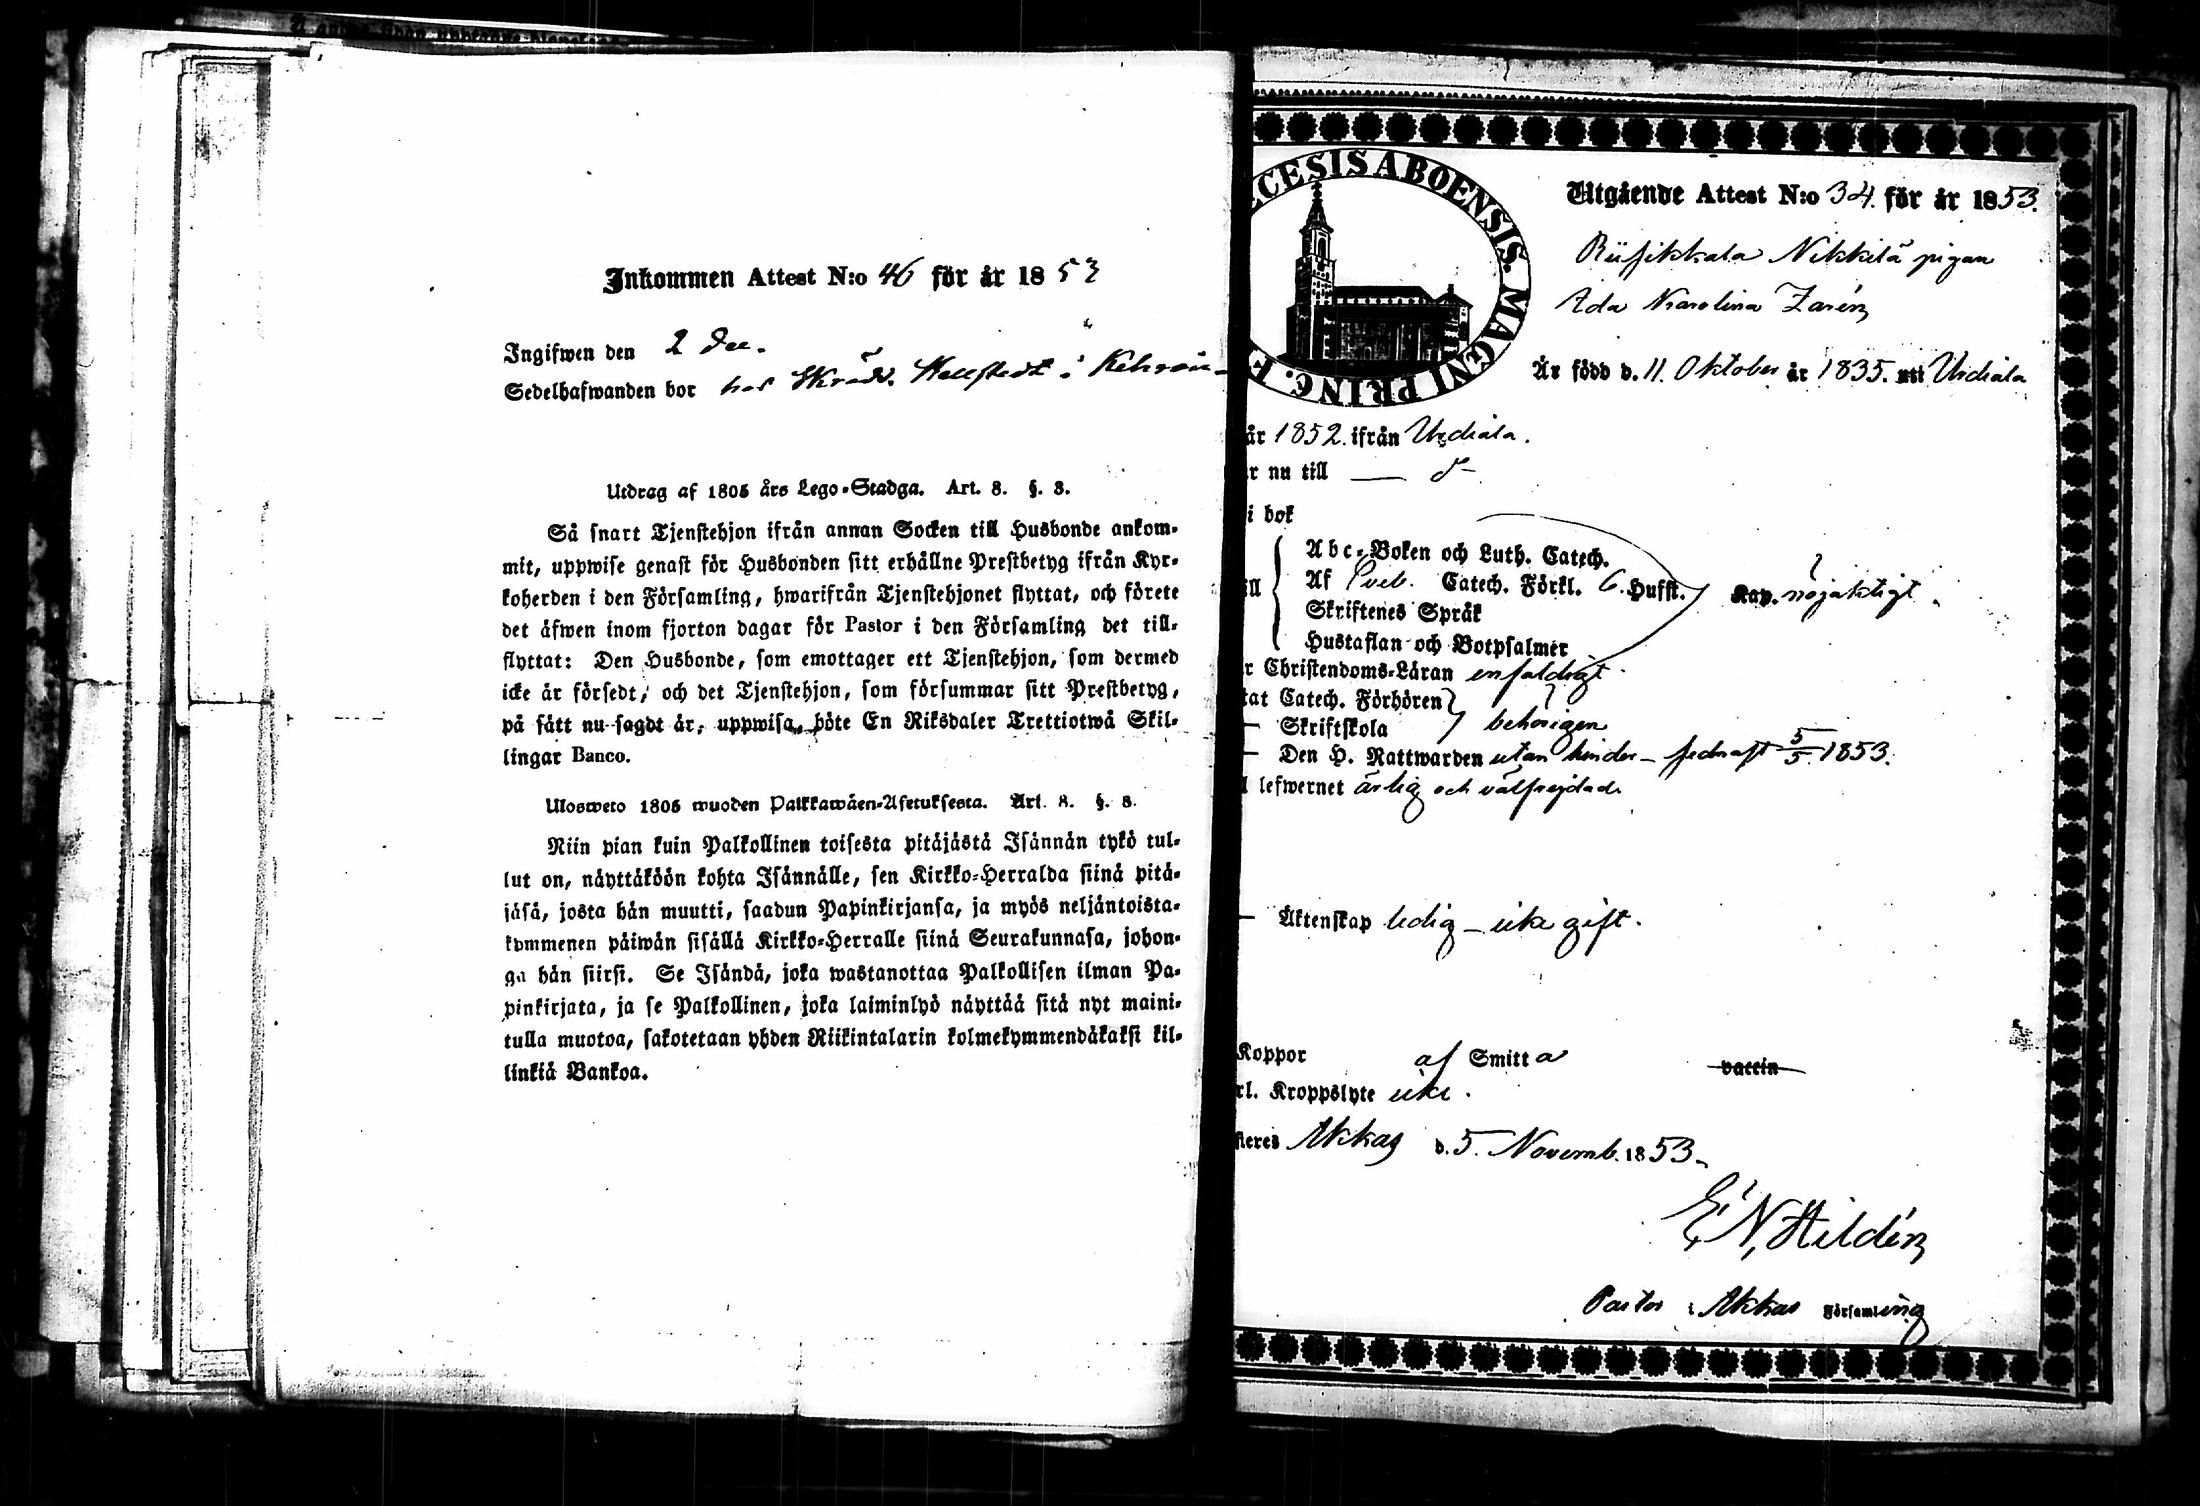 Inkommen Attest N:o 46 för år 1853
Ingifwen den 2 Dec.
Sedelhafwanden bor hos Skrädd. i
Utdrag af 1805 års Lego-Stadga. Art. 8. §. 3.
Så snart Tjenstehjon ifrån annan Socken till Husbonde ankom-
mit, uppwise genast för Husbonden sitt erhållne Prestbetyg ifrån Kyr-
koherden i den Församling, hwarifrån Tjenstehjonet flyttat, och förete
det äfwen inom fjorton dagar för Pastor i den Församling det till-
flyttat: Den Husbonde, som emottager ett Tjenstehjon, som dermed
icke är försedt, och det Tjenstehjon, som försummar sitt Prestbetyg,
på sätt nu sagdt är, uppwisa, böte En Riksdaler Trettiotwå Skil-
lingar Banco.
Ulosweto 1805 wuoden Palkkawäen-Asetuksesta. Art. 8. §. 3.
Niin pian kuin Palkollinen toisesta pitäjästä Isännän tykö tul-
lut on, näyttäköön kohta Isännälle, sen Kirkko-Herralda siinä pitä-
jäsä, josta hän muutti, saadun Papinkirjansa, ja myös neljäntoista-
kymmenen päiwän sisällä Kirkko-Herralle siinä Seurakunnasa, johon-
ga hän siirsi. Se Isändä, joka wastanottaa Palkollisen ilman Pa-
pinkirjata, ja se Palkollinen, joka laiminlyö näyttää sitä nyt maini-
tulla muotoa, sakotetaan yhden Riikintalarin kolmekymmendäkaksi kil-
linkiä Bankoa.
CESIS ABOENSIS. MAGNI PRINC. F
Utgående Attest N:o 34. för år 1853.
Nikkilä pigan
Ida Karolina Zarén
Är född d. 11. Oktober år 1835. uti Urdiala
år 1852. ifrån Urdiala.
r nu till — d-
i bok
Abc-Boken och Luth. Catech.
Af Sveb. Catech. Förkl. 6. Hufst. Kap. nöjaktigt.
Skriftenes Språk
Hustaflan och Botpsalmer
r Christendoms-Läran enfaldigt.
tat Catech. Förhören
— Skriftskola behörigen
— Den H. Nattwarden utan hinder - sednast 5/5 1853.
l lefwernet ärlig och välfrejdad.
— Äktenskap ledig - icke gift.
Koppor af Smitta vaccin
rl. Kroppslyte icke.
steres Akkas d. 5. Novemb. 1853.
E. N. Hildén
Pastor i Akkas Församling